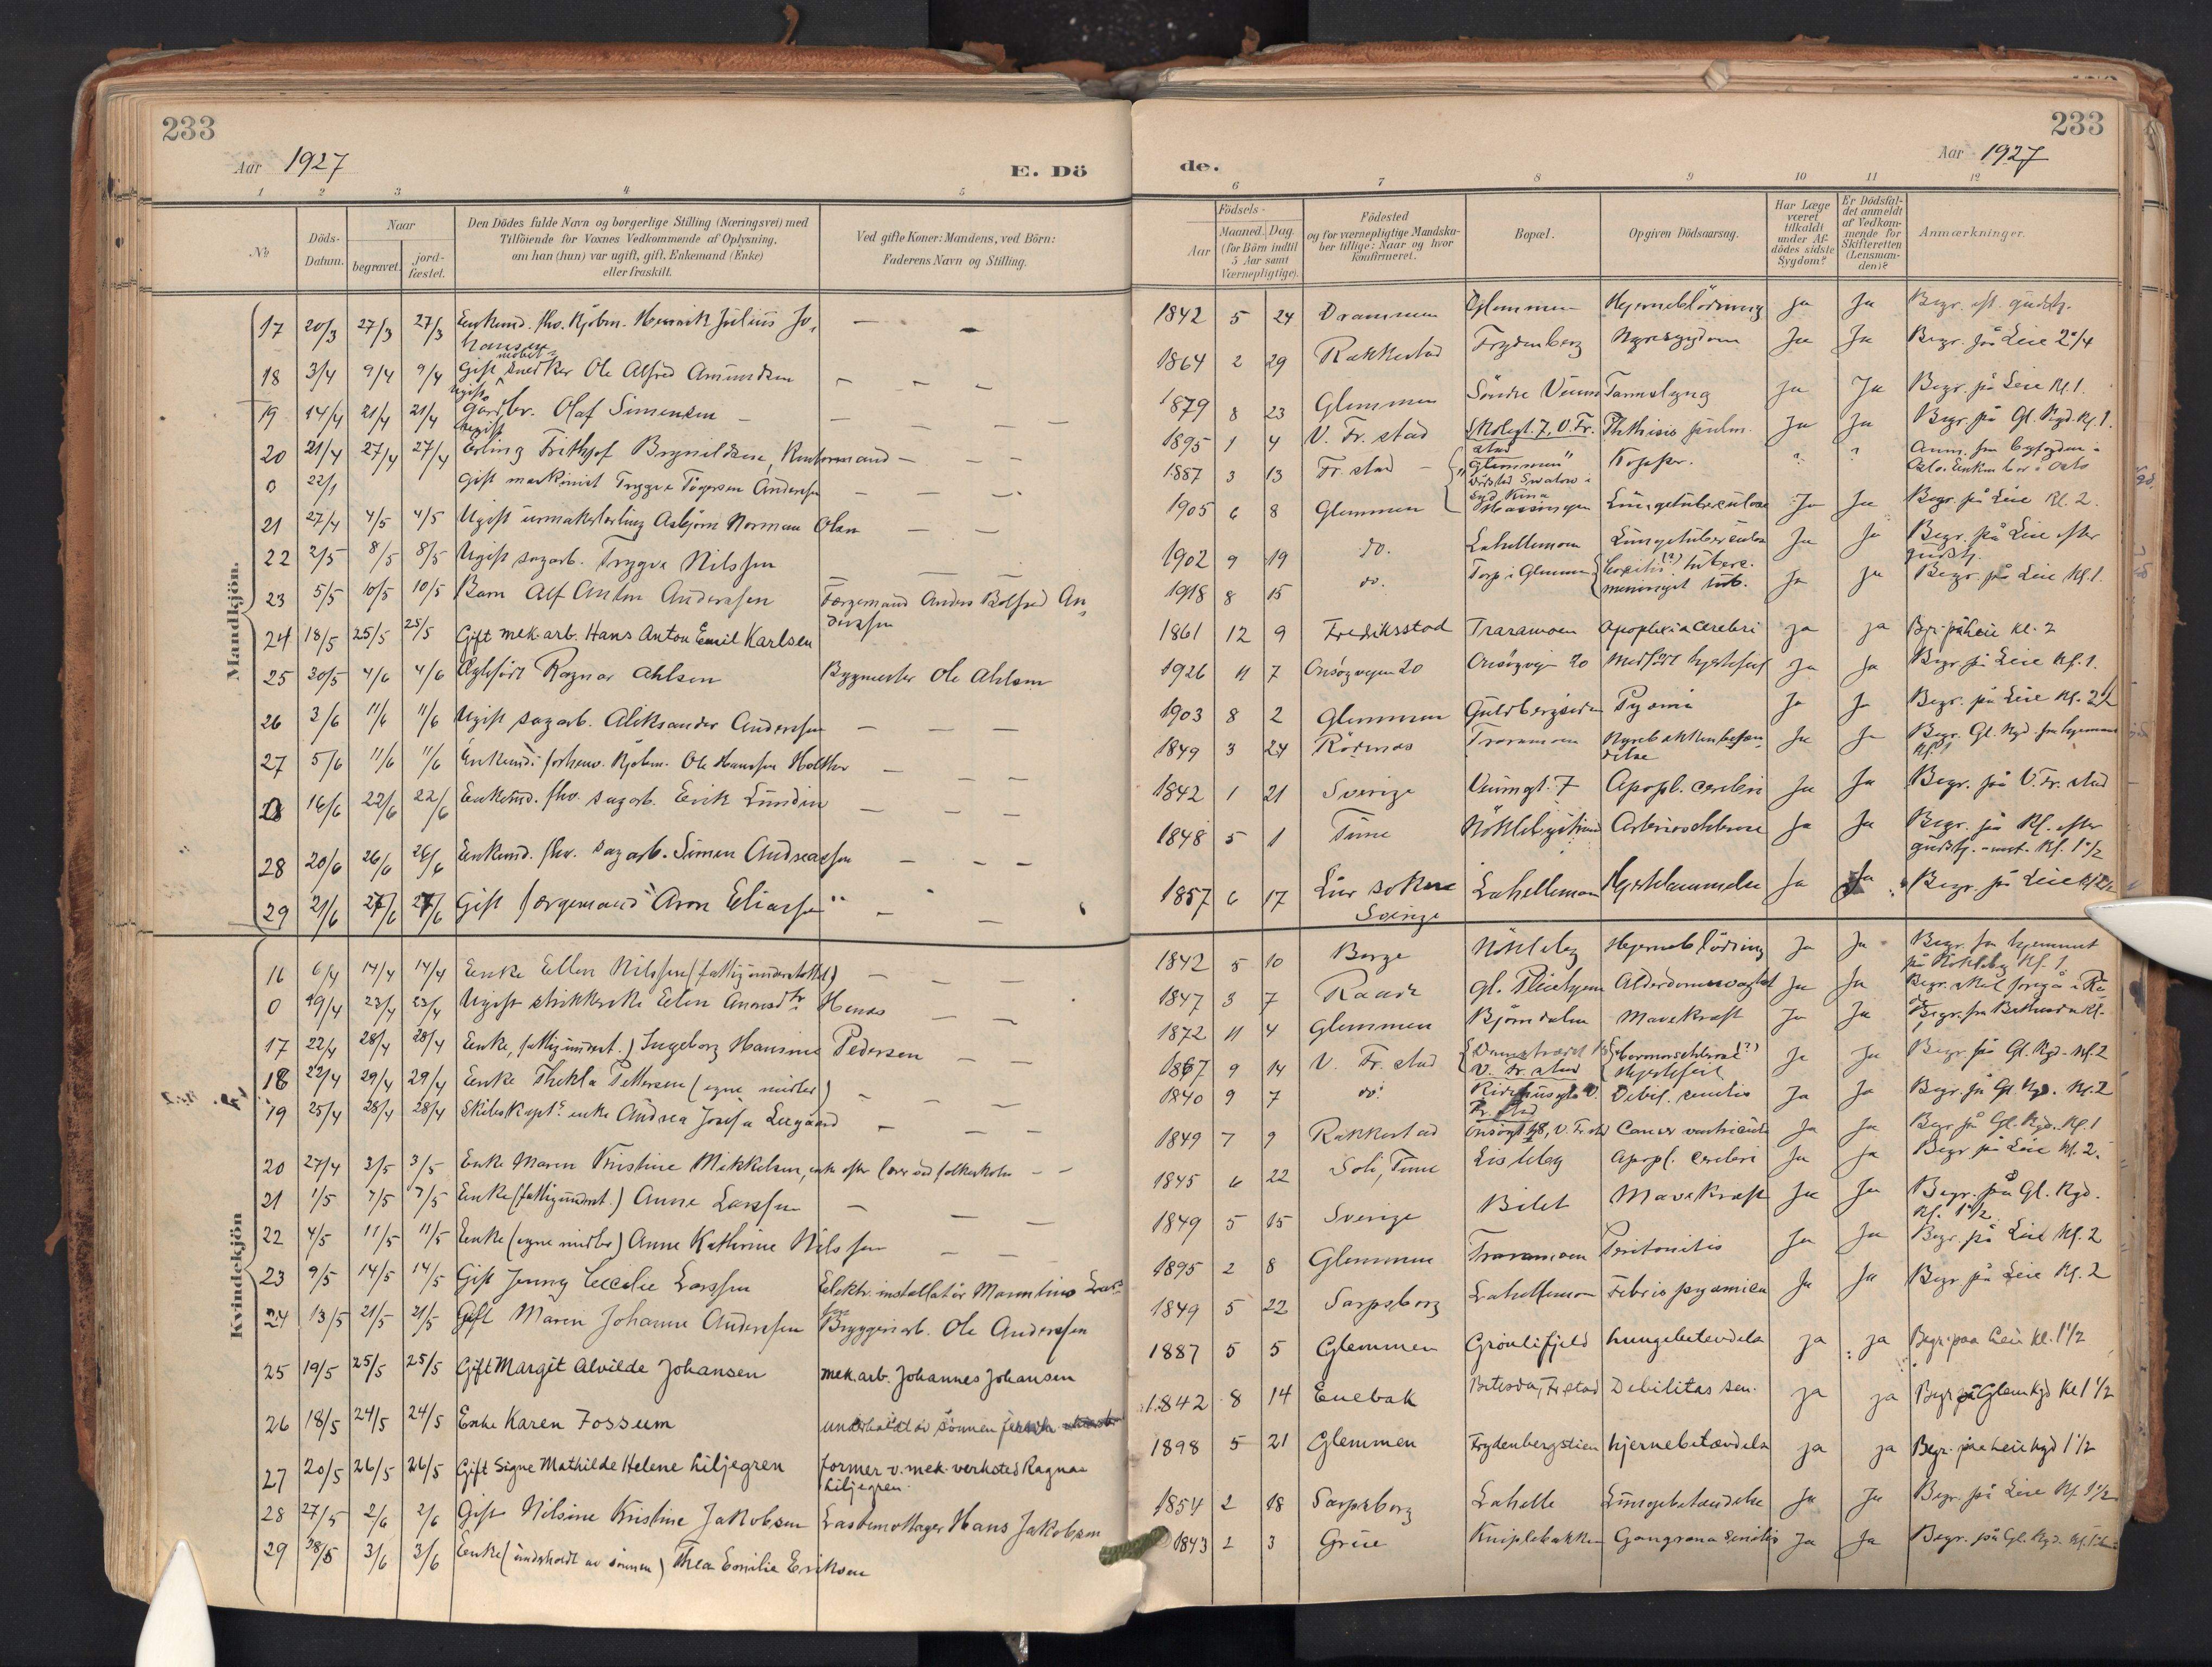 233
Aar 1927
E. Dö
1 2 3 4 5
No
Döds-Datum.
Naar
begravet.
jord-fæstet.
Den Dödes fulde Navn og borgerlige Stilling (Næringsvei) med
Tilföiende for Voxnes Vedkommende af Oplysning,
om han (hun) var ugift, gift, Enkemand (Enke)
eller fraskilt.
Ved gifte Koner: Mandens, ved Börn:
Faderens Navn og Stilling.
Mandkjön.
17 20/3 27/3 27/3 Enkemd. fhv. Kjöbm. Henrik Julius Jo-
hansen
18 3/4 9/4 9/4 Gift snedker Ole Alfred Amundsen
19 14/4 21/4 21/4 Ugift gaardbr. Olaf Simensen
20 21/4 27/4 27/4 Ugift Erling Frithjof Brynildsen
0 22/1 Gift maskinist Trygve Andersen
21 27/4 4/5 4/5 Ugift urmakerlærling Asbjörn Norman Olsen
22 2/5 8/5 8/5 Ugift sagarb. Trygve Nilssen
23 5/5 10/5 10/5 Barn Alf Anton Anderssen Færgemand Anders Botfred An-
derssen
24 18/5 25/5 25/5 Gift mek. arb. Hans Anton Emil Karlsen
25 30/5 4/6 4/6 Ægtefödt Ragnar Ahlsen Bygmester Ole Ahlsen
26 3/6 11/6 11/6 Ugift sagarb. Aleksander Anderssen
27 5/6 11/6 11/6 Enkemd. forhenv. Kjöbm. Ole Hanssen Holther
28 16/6 22/6 22/6 Enkemd. fhv. sagarb. Erik Lundin
28 20/6 26/6 26/6 Enkemd. fhv. sagarb. Simen Andreassen
29 21/6 27/6 27/6 Gift færgemand Aron Eliassen
Kvindekjön
16 6/4 14/4 14/4 Enke Ellen Nilssen (fattigunderstöttet)
0 19/4 23/4 23/4 Ugift strikkerske Elen
17 22/4 28/4 28/4 Enke, (fattigunderst.) Ingeborg Hansine Pedersen
18 22/4 29/4 29/4 Enke Thekla Pettersen (egne midler)
19 25/4 28/4 28/4 Skibskapt. enke Andrea Josefa Leegaard
20 27/4 3/5 3/5 Enke Maren Kristine Mikkelsen, enke efter lærer ved folkeskolen
21 1/5 7/5 7/5 Enke (fattigunderst.) Anne Larssen
22 4/5 11/5 11/5 Enke (egne midler) Anne Kathrine Nilssen
23 9/5 14/5 14/5 Gift Jenny Cecilie Larssen Elektr. installatör
24 13/5 21/5 21/5 Gift Maren Johanne Anderssen Bryggeriarb. Ole Anderssen
25 19/5 25/5 25/5 Gift Margit Alvilde Johansen mek. arb. Johannes Johansen
26 18/5 24/5 24/5 Enke Karen Fossum underholdt av sönnen
27 20/5 26/5 26/5 Gift Signe Mathilde Helene Liljegren former v. mek. verksted Ragnar
Liljegren.
28 27/5 2/6 2/6 Gift Nilsine Kristine Jakobsen Lastemottager Hans Jakobsen
29 28/5 3/6 3/6 Enke (underholdt av sönnen) Thea Emilie Eriksen
233
Aar 1927
de.
6 7 8 9 10 11 12
Födsels-
Aar
Maaned. Dag.
(for Börn indtil
5 Aar samt
Værnepligtige).
Födested
og for værnepligtige Mandska-
ber tillige: Naar og hvor
konfirmeret.
Bopæl.
Opgiven Dödsaarsag.
Har Læge
været
tilkaldt
under Af-
dödes sidste
Sygdom?
Er Dödsfal-
det anmeldt
af Vedkom-
mende for
Skifteretten
(Lensman-
den)?
Anmærkninger.
1842 5 24 Drammen Glemmen Hjerneblödning Ja Ja Begr. eft. gudstj.
1864 2 29 Rakkestad Frydenberg Nyresygdom Ja Ja Begr. på Leie
1879 8 23 Glemmen Söndre Veum Ja Ja Begr. på Leie Kl. 1.
1895 1 4 V. Fr. stad V. Fr. stad Phthisis pulm. Ja Ja Begr. på Gl. Kgd. Kl. 1.
1887 3 13 Fr. stad "Glemmen" Kopper. ? ?
Syd Kina
1905 6 8 Glemmen Lungetuberculose Ja Ja Begr. på Leie Kl. 2.
1902 9 19 do. Lahellemoen Lungetuberculose Ja Ja Begr. på Leie efter
gudstj.
1918 8 15 do. Torp i Glemmen Coxitis (?) tuberc.
meningit tub. Ja Ja Begr. på Leie Kl. 1.
1861 12 9 Fredriksstad Traramoen Apoplexia cerebri Ja Ja Begr. på Leie Kl. 2
1926 11 7 Onsöyveien 20 Onsöyvei 20 Medfödt hjertefeil Ja Ja Begr. på Leie Kl. 1.
1903 8 2 Glemmen Guldbergsiden Pyæmi Ja Ja Begr. på Leie Kl. 2 1/2
1849 3 24 Rödenes Traramoen Nyrebækkenbetæn-
delse Ja Ja Begr. Gl. Kgd. fra hjemmet
Kl. 1
1842 1 21 Sverige Veumgt. 7 Apopl. cerebri Ja Ja Begr. på V. Fr. stad
1848 5 1 Tune Arteriosclerose Ja Ja Begr. på Kl. efter
gudstj. Kl. 1 1/2
1857 6 17 Sverige Lahellemoen Hjertelammelse Ja Ja Begr. på Leie
1842 5 10 Borge Nökleby Hjerneblödning Ja Ja Begr. fra hjemmet
på Nökleby Kl. 1
1847 3 7 Raade Gl. Pleiehjem Alderdomssvaghet Ja Ja Begr. skal foregå i Rå-
de
1872 11 4 Glemmen Björndalen Mavekræft Ja Ja Begr. fra Bethesda Kl.
1
1867 9 14 V. Fr. stad V. Fr. stad Hjertefeil Ja Ja Begr. på Gl. Kgd. Kl. 2
1840 9 7 do. V.
Fr. stad Debil. senilis Ja Ja Begr. på Gl. Kgd. Kl. 2
1849 7 9 Rakkestad V. Fr. stad Cancer ventriculi Ja Ja Begr. på Gl. Kgd. Kl. 1
1845 6 22 Soli, Tune Lisleby Apopl. cerebri Ja Ja Begr. på Leie Kl. 2.
1849 5 15 Sverige Bilet Mavekræft Ja Ja Begr. på Gl. Kgd.
Kl. 1 1/2
1895 2 8 Glemmen Traramoen Peritonitis Ja Ja Begr. på Leie Kl. 2
1849 5 22 Sarpsborg Lahellemoen Febris pyæmica Ja Ja Begr. på Leie Kl. 2
1887 5 5 Glemmen Grönlifjeld Lungebetændelse ja ja Begr. paa Leie kl. 1 1/2
1842 8 14 Enebak Betesda, Fr. stad Debilitas sen. ja ja Begr. på Glem. kgd kl 1 1/2
1898 5 21 Glemmen Frydenbergstien Hjernebetændelse ja ja Begr. paa Leie kgd 1 1/2
1854 2 18 Sarpsborg Lahelle Lungebetændelse Ja Ja Begr. på Leie Kl. 1 1/2
1843 2 3 Grue Kniplebakken Gangræna senilis Ja Ja Begr. på Gl. Kgd.